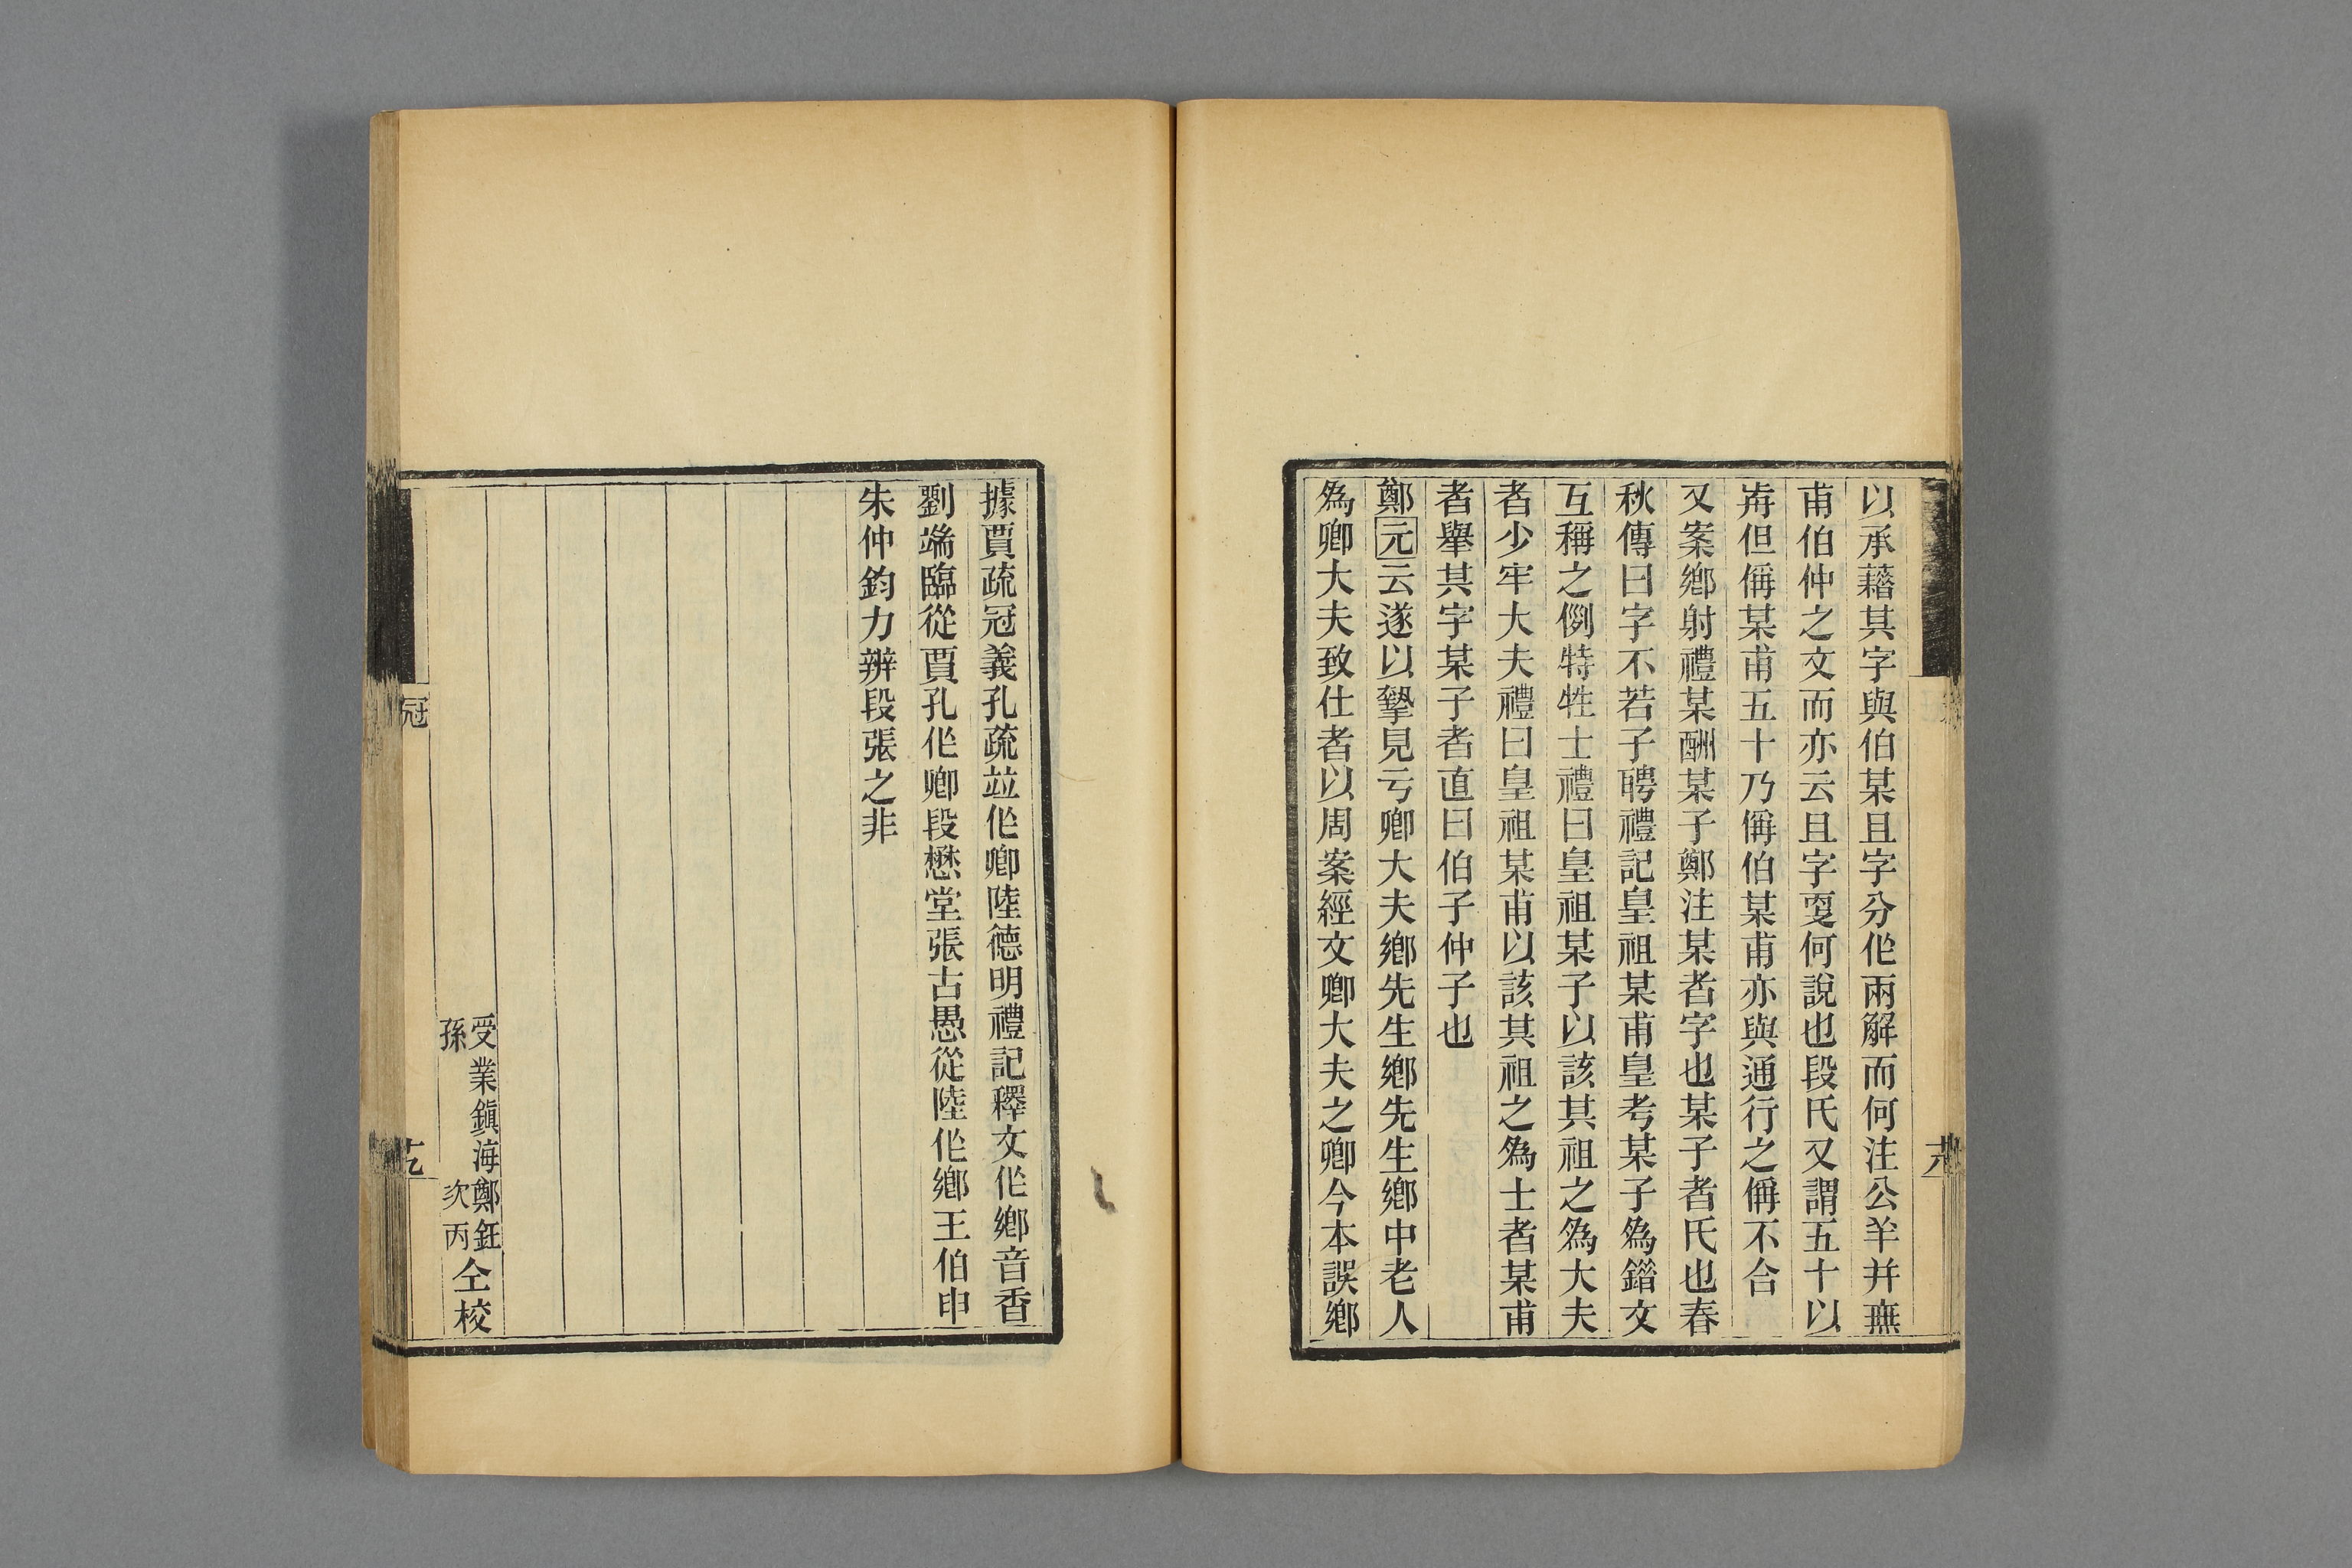 以承藉其字與伯某且字分作兩解而何注公羊并無
甫伯仲之文而亦云且字㪅何說也段氏又謂五十以
歬但偁某甫五十乃偁伯某甫亦與通行之偁不合
又案鄉射禮某酬某子鄭注某者字也某子者氏也春
秋傳曰字不若子聘禮記皇祖某甫皇考某子為錯文
互稱之例特牲士禮曰皇祖某子以該其祖之為大夫
者少牢大夫禮曰皇祖某甫以該其祖之為士者某甫
者舉其字某子者直曰伯子仲子也
鄭元云遂以摯見亏卿大夫鄉先生鄉先生鄉中老人
為卿大夫致仕者以周案經文卿大夫之卿今本誤鄉
據賈疏冠義孔疏竝作卿陸德明禮記釋文作鄉音香
劉端臨從賈孔作卿段懋堂張古愚從陸作鄉王伯申
朱仲鈞力辨段張之非
受業鎮海鄭鈺
孫 次丙
仝校
冠